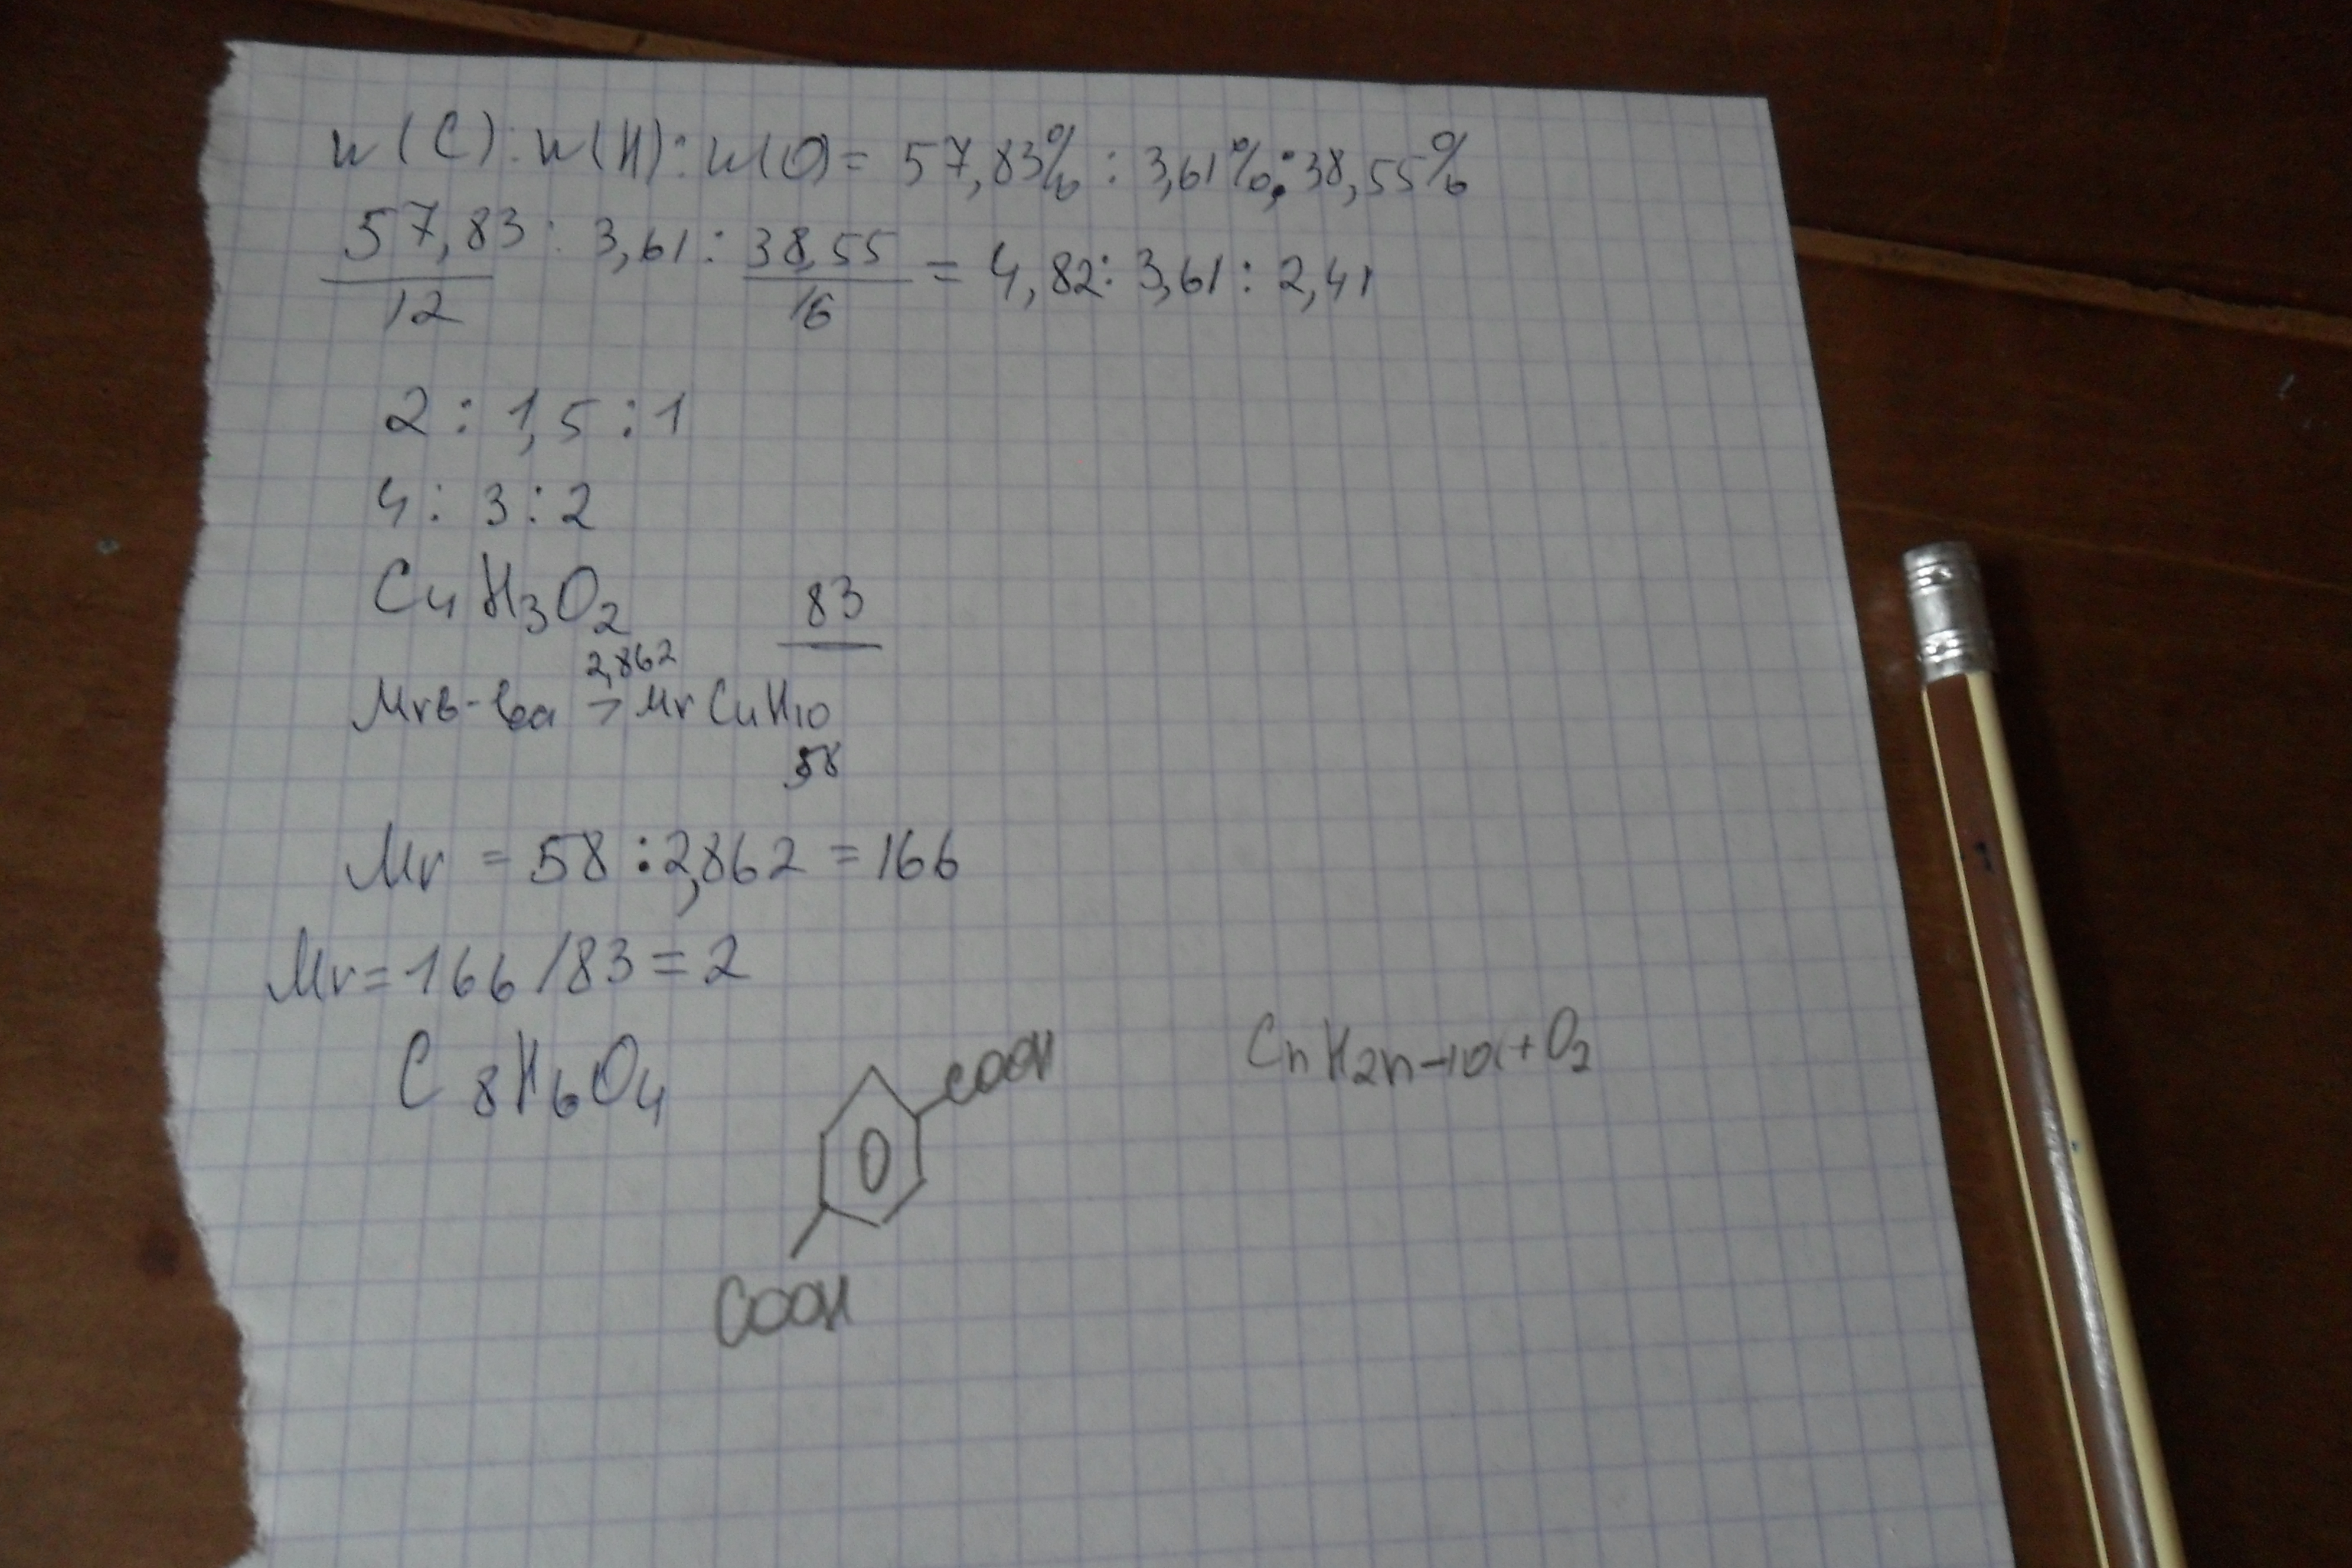 w(C):w(H):w(O)= 57,83% : 3,61% : 38,55%
57,83/12 : 3,61 : 38,55/16 = 4,82 : 3,61 : 2,41
2 : 1,5 : 1
4 : 3 : 2
C4H3O2
83
2,862
Mr в-ва > Mr C4H10
58
Mr = 58 : 2,862 = 166
Mr = 166/83 = 2
C8H6O4
COOH
COOH